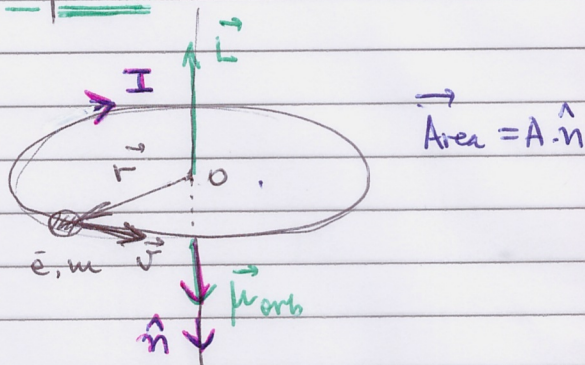 L⃗
I
Area⃗ = A.n̂
r⃗
O
ē, m
v⃗
μ⃗orb
n̂